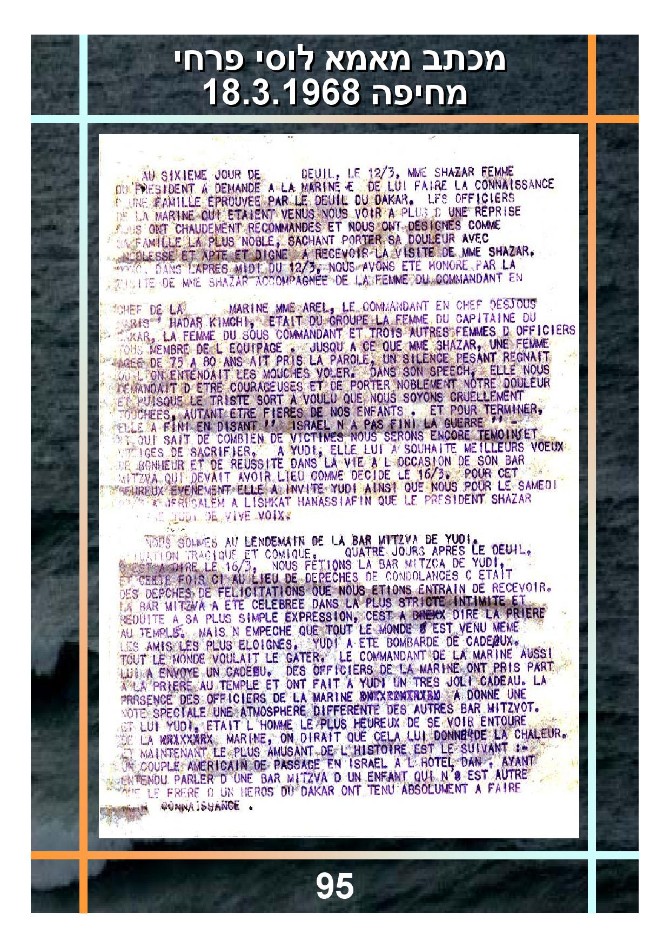 מכתב מאמא לוסי פרחי
מחיפה 18.3.1968
AU SIXIEME JOUR DE DEUIL, LE 12/3, MME SHAZAR FEMME
PRESIDENT A DEMANDE A LA MARINE DE LUI FAIRE LA CONNAISSANCE
FAMILLE EPROUVEE PAR LE DEUIL DU DAKAR. LES OFFICIERS
DE LA MARINE QUI ETAIENT VENUS NOUS VOIR A PLUS D UNE REPRISE
ONT CHAUDEMENT RECOMMANDES ET NOUS ONT DESIGNES COMME
FAMILLE LA PLUS NOBLE, SACHANT PORTER SA DOULEUR AVEC
ET APTE ET DIGNE A RECEVOIR LA VISITE DE MME SHAZAR.
DANS LAPRES MIDI DU 12/3, NOUS AVONS ETE HONORE PAR LA
DE MME SHAZAR ACCOMPAGNEE DE LA FEMME DU COMMANDANT EN
CHEF DE LA MARINE MME AREL, LE COMMANDANT EN CHEF DESJOUS
HADAR KIMCHI, ETAIT DU GROUPE LA FEMME DU CAPITAINE DU
LA FEMME DU SOUS COMMANDANT ET TROIS AUTRES FEMMES D OFFICIERS
MEMBRE DE L EQUIPAGE . JUSQU A CE QUE MME SHAZAR, UNE FEMME
DE 75 A 80 ANS AIT PRIS LA PAROLE, UN SILENCE PESANT REGNAIT
ON ENTENDAIT LES MOUCHES VOLER. DANS SON SPEECH, ELLE NOUS
D ETRE COURAGEUSES ET DE PORTER NOBLEMENT NOTRE DOULEUR
PUISQUE LE TRISTE SORT A VOULU QUE NOUS SOYONS CRUELLEMENT
AUTANT ETRE FIERES DE NOS ENFANTS . ET POUR TERMINER,
ELLE A FINI EN DISANT '' ISRAEL N A PAS FINI LA GUERRE '' -
QUI SAIT DE COMBIEN DE VICTIMES NOUS SERONS ENCORE TEMOINSET
DE SACRIFIER. A YUDI, ELLE LUI A SOUHAITE MEILLEURS VOEUX
BONHEUR ET DE REUSSITE DANS LA VIE A L OCCASION DE SON BAR
MITZVA QUI DEVAIT AVOIR LIEU COMME DECIDE LE 16/3. POUR CET
HEUREUX EVENEMENT ELLE A INVITE YUDI AINSI QUE NOUS POUR LE SAMEDI
A JERUSALEM A LISHKAT HANASSIAFIN QUE LE PRESIDENT SHAZAR
DE VIVE VOIX.
NOUS SOMMES AU LENDEMAIN DE LA BAR MITZVA DE YUDI.
TRAGIQUE ET COMIQUE. QUATRE JOURS APRES LE DEUIL,
A DIRE LE 16/3, NOUS FETIONS LA BAR MITZCA DE YUDI,
ET CETTE FOIS CI AU LIEU DE DEPECHES DE CONDOLANCES C ETAIT
DES DEPCHES DE FELICITATIONS QUE NOUS ETIONS ENTRAIN DE RECEVOIR.
LA BAR MITZVA A ETE CELEBREE DANS LA PLUS STRICTE INTIMITE ET
REDUITE A SA PLUS SIMPLE EXPRESSION, CEST A DIRE LA PRIERE
AU TEMPLE. MAIS N EMPECHE QUE TOUT LE MONDE EST VENU MEME
LES AMIS LES PLUS ELOIGNES. YUDI A ETE BOMBARDE DE CADEAUX.
TOUT LE MONDE VOULAIT LE GATER. LE COMMANDANT DE LA MARINE AUSSI
LUI A ENVOYE UN CADEBU. DES OFFICIERS DE LA MARINE ONT PRIS PART
A LA PRIERE AU TEMPLE ET ONT FAIT A YUDI UN TRES JOLI CADEAU. LA
PRESENCE DES OFFICIERS DE LA MARINE A DONNE UNE
NOTE SPECIALE UNE ATMOSPHERE DIFFERENTE DES AUTRES BAR MITZVOT.
ET LUI YUDI, ETAIT L HOMME LE PLUS HEUREUX DE SE VOIR ENTOURE
DE LA MARINE, ON DIRAIT QUE CELA LUI DE LA CHALEUR.
MAINTENANT LE PLUS AMUSANT DE L HISTOIRE EST LE SUIVANT :-
COUPLE AMERICAIN DE PASSAGE EN ISRAEL A L HOTEL DAN, AYANT
ENTENDU PARLER D UNE BAR MITZVA D UN ENFANT QUI EST AUTRE
QUE LE FRERE D UN HEROS DU DAKAR ONT TENU ABSOLUMENT A FAIRE
CONNAISSANCE .
95